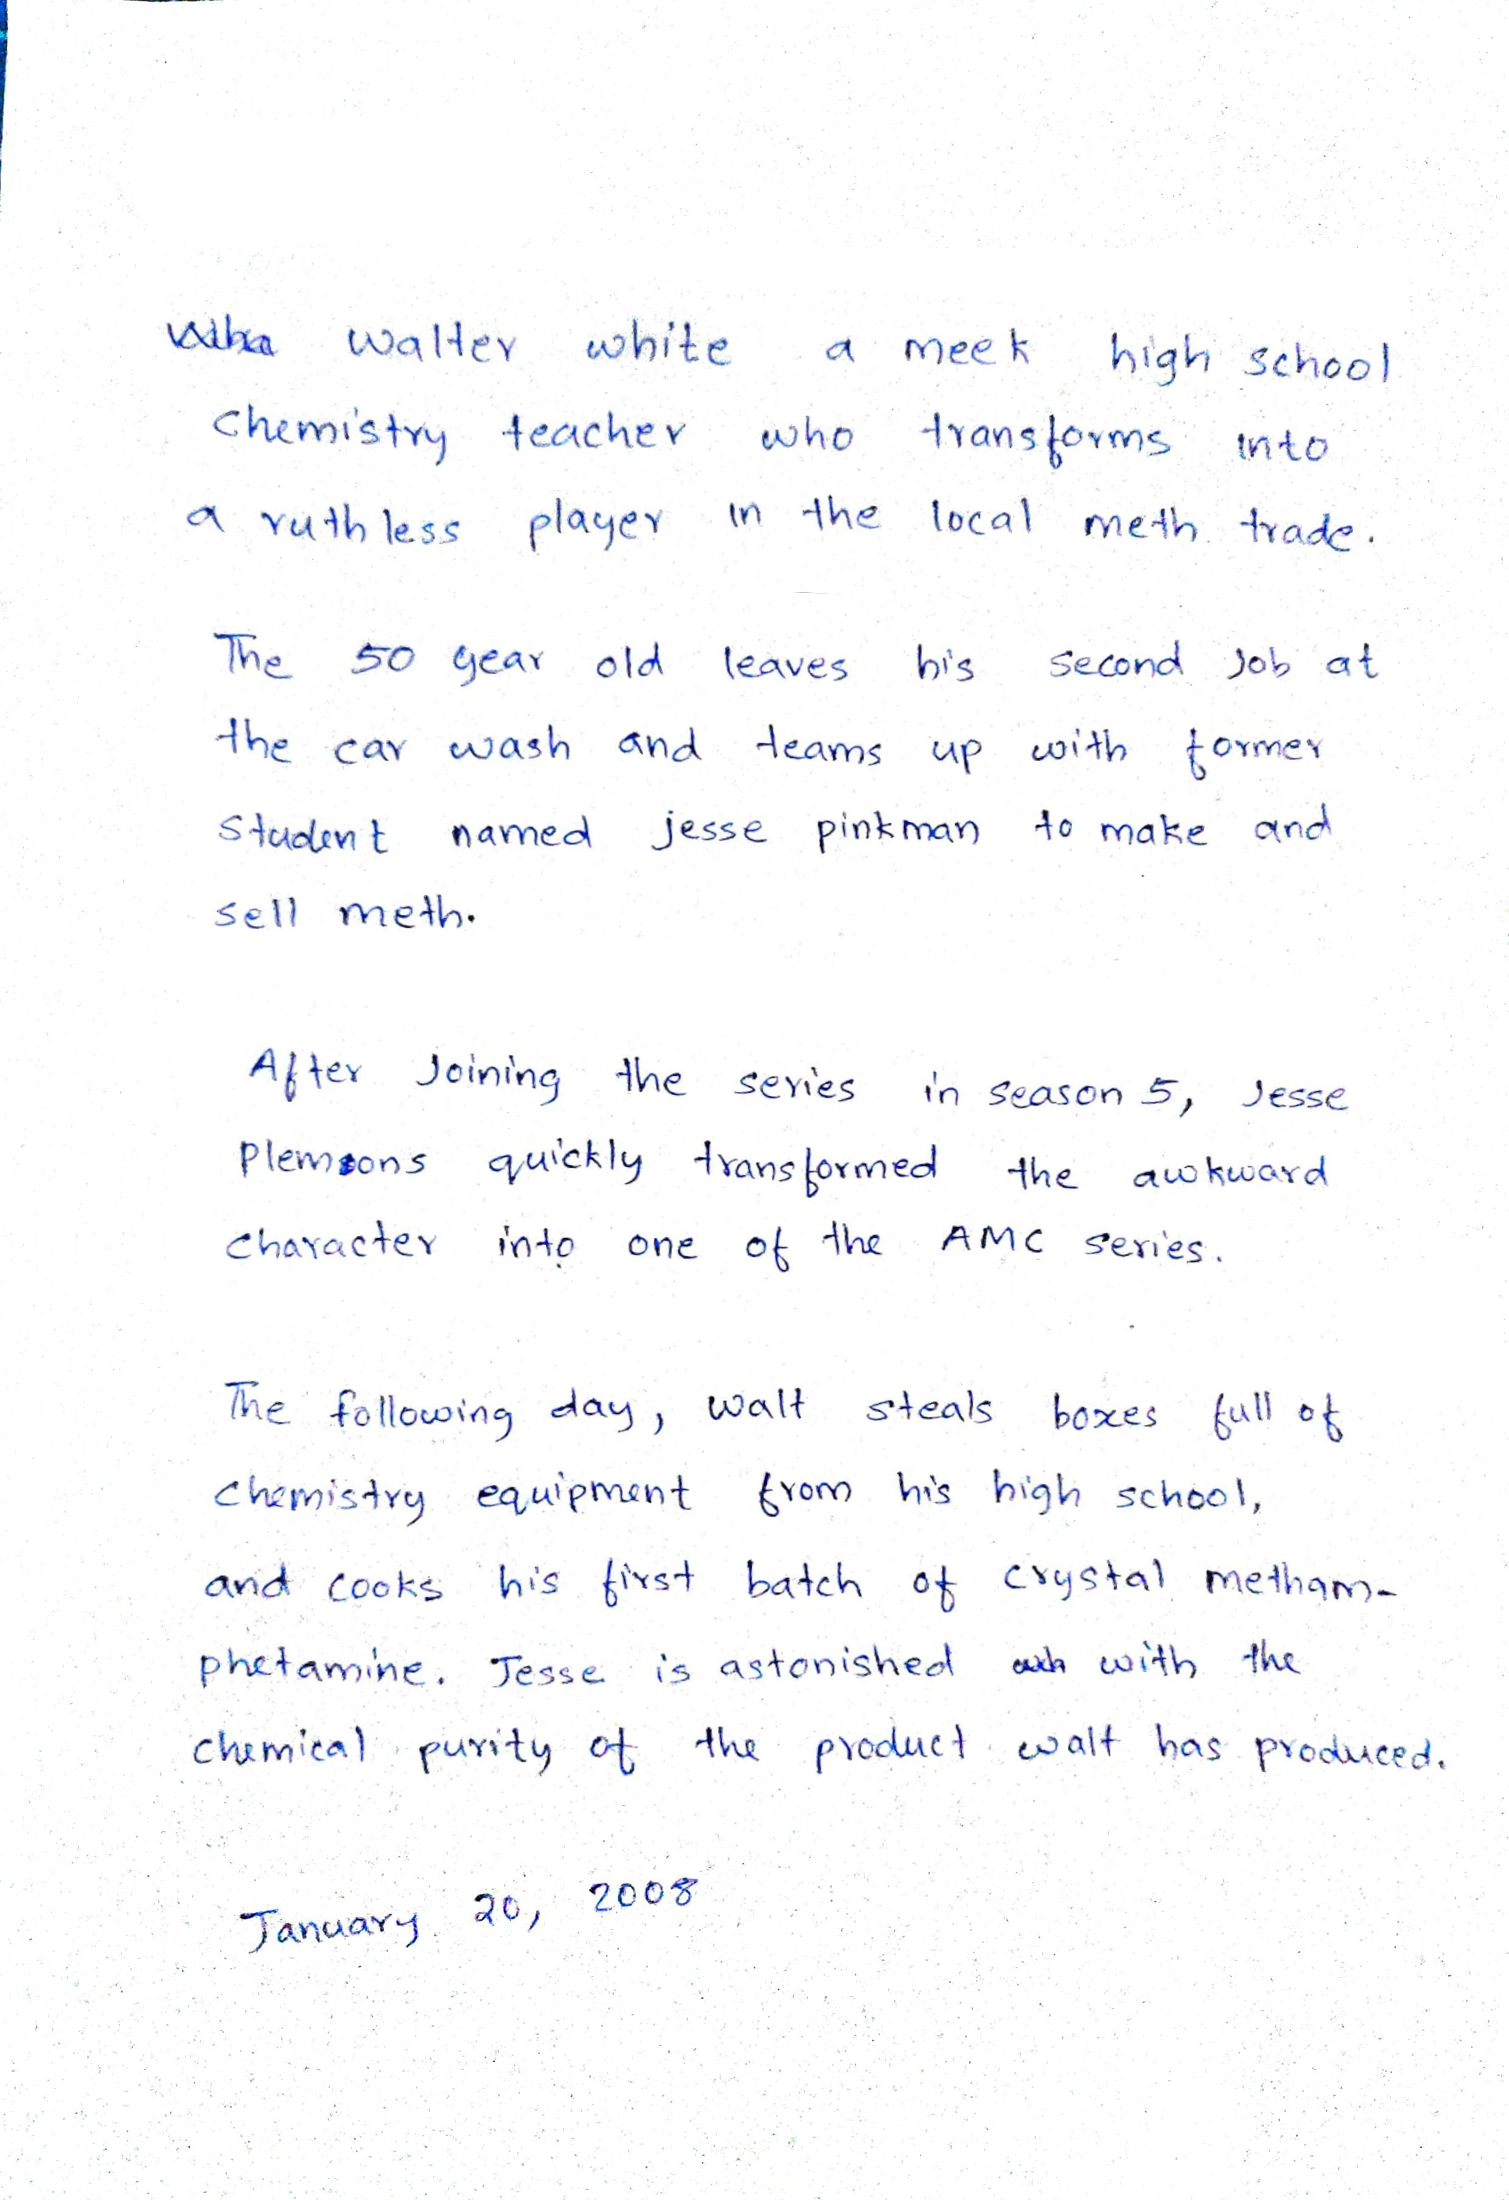 walter white a meek high school
chemistry teacher who transforms into
a ruthless player in the local meth trade.
The 50 year old leaves his second Job at
the car wash and teams up with former
student named jesse pinkman to make and
sell meth.
After Joining the series in season 5, Jesse
Plemsons quickly transformed the awkward
character into one of the AMC series.
The following day, walt steals boxes full of
chemistry equipment from his high school,
and cooks his first batch of crystal metham-
phetamine. Jesse is astonished with the
chemical purity of the product walt has produced.
January 20, 2008